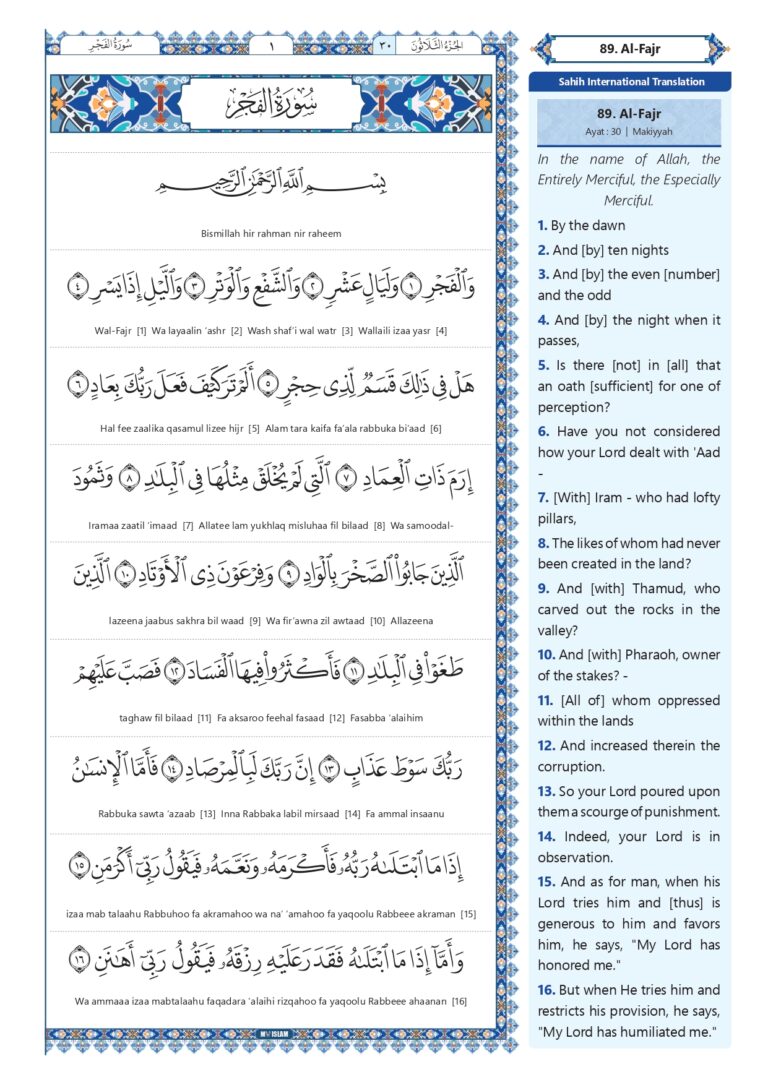 سُورَةُ الفَجْرِ
١
٣٠
الجُزْءُ الثَّلَاثُونَ
سُورَةُ الفَجْرِ
بِسْمِ ٱللَّهِ ٱلرَّحْمَٰنِ ٱلرَّحِيمِ
Bismillah hir rahman nir raheem
وَٱلْفَجْرِ ١ وَلَيَالٍ عَشْرٍ ٢ وَٱلشَّفْعِ وَٱلْوَتْرِ ٣ وَٱلَّيْلِ إِذَا يَسْرِ ٤
Wal-Fajr [1] Wa layaalin ‘ashr [2] Wash shaf‘i wal watr [3] Wallaili izaa yasr [4]
هَلْ فِى ذَٰلِكَ قَسَمٌ لِّذِى حِجْرٍ ٥ أَلَمْ تَرَ كَيْفَ فَعَلَ رَبُّكَ بِعَادٍ ٦
Hal fee zaalika qasamul lizee hijr [5] Alam tara kaifa fa‘ala rabbuka bi‘aad [6]
إِرَمَ ذَاتِ ٱلْعِمَادِ ٧ ٱلَّتِى لَمْ يُخْلَقْ مِثْلُهَا فِى ٱلْبِلَٰدِ ٨ وَثَمُودَ
Iramaa zaatil ‘imaad [7] Allatee lam yukhlaq misluhaa fil bilaad [8] Wa samoodal-
ٱلَّذِينَ جَابُوا۟ ٱلصَّخْرَ بِٱلْوَادِ ٩ وَفِرْعَوْنَ ذِى ٱلْأَوْتَادِ ١٠ ٱلَّذِينَ
lazeena jaabus sakhra bil waad [9] Wa fir‘awna zil awtaad [10] Allazeena
طَغَوْا۟ فِى ٱلْبِلَٰدِ ١١ فَأَكْثَرُوا۟ فِيهَا ٱلْفَسَادَ ١٢ فَصَبَّ عَلَيْهِمْ
taghaw fil bilaad [11] Fa aksaroo feehal fasaad [12] Fasabba ‘alaihim
رَبُّكَ سَوْطَ عَذَابٍ ١٣ إِنَّ رَبَّكَ لَبِٱلْمِرْصَادِ ١٤ فَأَمَّا ٱلْإِنسَٰنُ
Rabbuka sawta ‘azaab [13] Inna Rabbaka labil mirsaad [14] Fa ammal insaanu
إِذَا مَا ٱبْتَلَىٰهُ رَبُّهُۥ فَأَكْرَمَهُۥ وَنَعَّمَهُۥ فَيَقُولُ رَبِّىٓ أَكْرَمَنِ ١٥
izaa mab talaahu Rabbuhoo fa akramahoo wa na‘ ‘amahoo fa yaqoolu Rabbeee akraman [15]
وَأَمَّآ إِذَا مَا ٱبْتَلَىٰهُ فَقَدَرَ عَلَيْهِ رِزْقَهُۥ فَيَقُولُ رَبِّىٓ أَهَٰنَنِ ١٦
Wa ammaaa izaa mabtalaahu faqadara ‘alaihi rizqahoo fa yaqoolu Rabbeee ahaanan [16]
89. Al-Fajr
Sahih International Translation
89. Al-Fajr
Ayat : 30 | Makiyyah
In the name of Allah, the
Entirely Merciful, the Especially
Merciful.
1. By the dawn
2. And [by] ten nights
3. And [by] the even [number]
and the odd
4. And [by] the night when it
passes,
5. Is there [not] in [all] that
an oath [sufficient] for one of
perception?
6. Have you not considered
how your Lord dealt with 'Aad
-
7. [With] Iram - who had lofty
pillars,
8. The likes of whom had never
been created in the land?
9. And [with] Thamud, who
carved out the rocks in the
valley?
10. And [with] Pharaoh, owner
of the stakes? -
11. [All of] whom oppressed
within the lands
12. And increased therein the
corruption.
13. So your Lord poured upon
them a scourge of punishment.
14. Indeed, your Lord is in
observation.
15. And as for man, when his
Lord tries him and [thus] is
generous to him and favors
him, he says, "My Lord has
honored me."
16. But when He tries him and
restricts his provision, he says,
"My Lord has humiliated me."